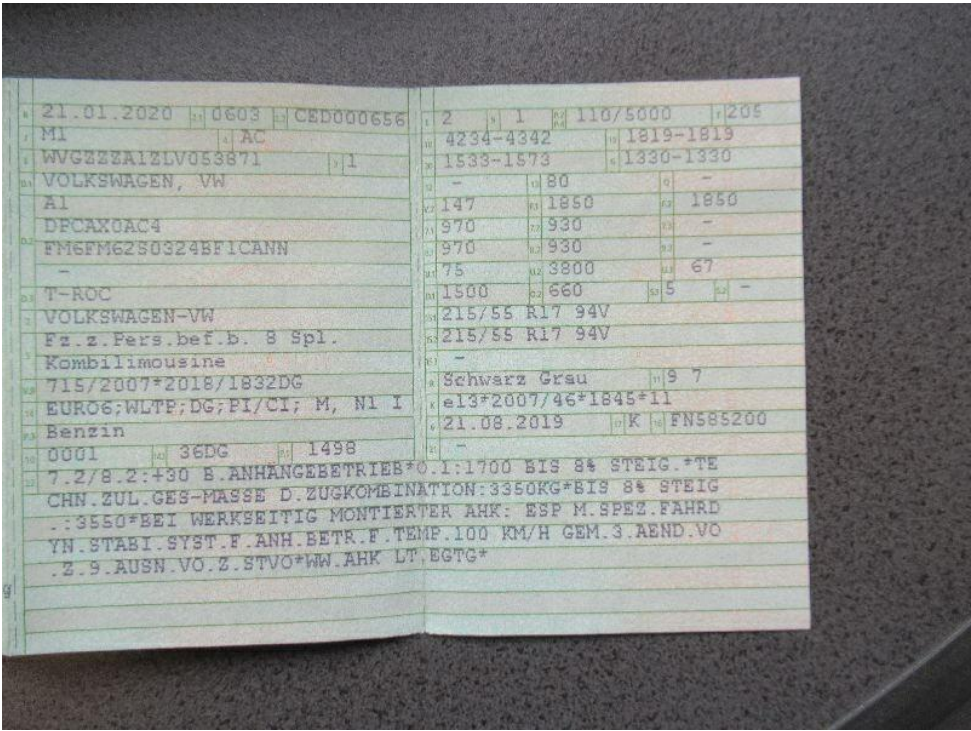 21.01.2020 0603 CED000656
M1 AC
WVGZZZA1ZLV053871 1
VOLKSWAGEN, VW
A1
DPCAX0AC4
FM6FM62S0324BF1CANN
-
T-ROC
VOLKSWAGEN-VW
Fz.z.Pers.bef.b. 8 Spl.
Kombilimousine
715/2007*2018/1832DG
EURO6;WLTP;DG;PI/CI; M, N1 I
Benzin
0001 36DG 1498
2 1 110/5000 205
4234-4342 1819-1819
1533-1573 1330-1330
- 80 -
147 1850 1850
970 930 -
970 930 -
75 3800 67
1500 660 5 -
215/55 R17 94V
215/55 R17 94V
-
Schwarz Grau 9 7
e13*2007/46*1845*11
21.08.2019 K FN585200
-
7.2/8.2:+30 B.ANHÄNGEBETRIEB*0.1:1700 BIS 8% STEIG.*TE
CHN.ZUL.GES-MASSE D.ZUGKOMBINATION:3350KG*BIS 8% STEIG
.:3550*BEI WERKSEITIG MONTIERTER AHK: ESP M.SPEZ.FAHRD
YN.STABI.SYST.F.ANH.BETR.F.TEMP.100 KM/H GEM.3.AEND.VO
.Z.9.AUSN.VO.Z.STVO*WW.AHK LT.EGTG*